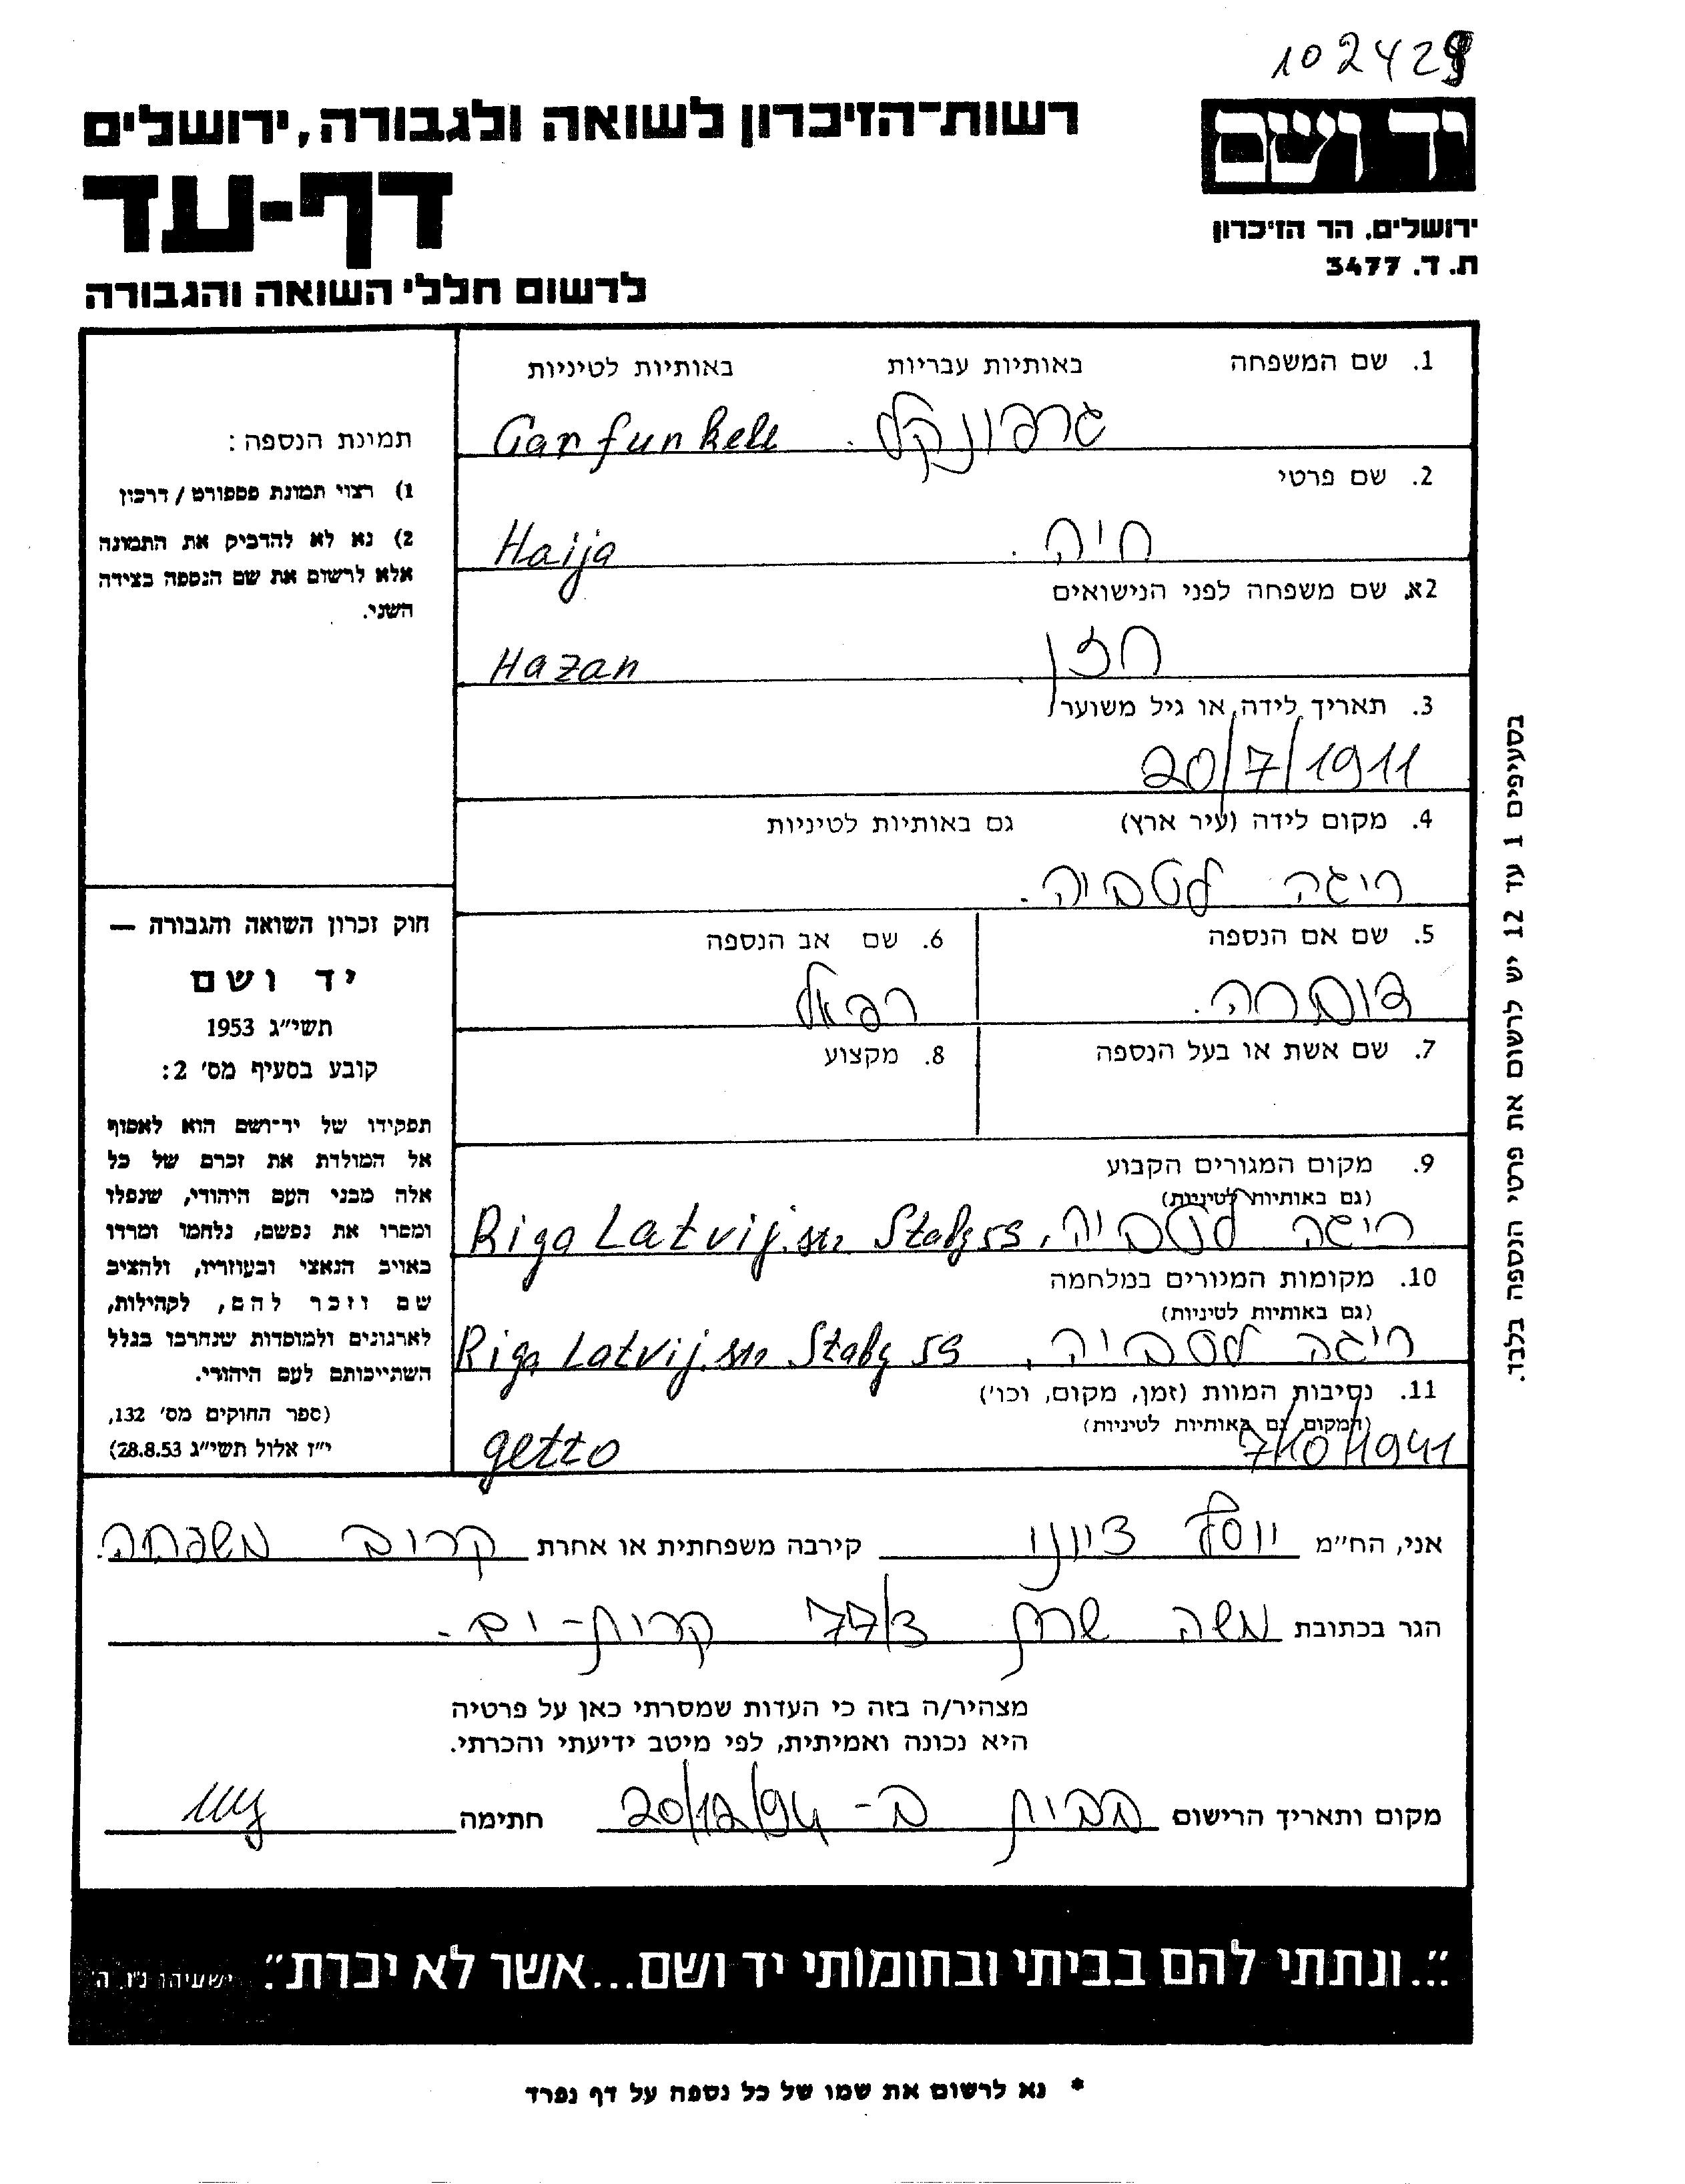 102429
רשות-הזיכרון לשואה ולגבורה, ירושלים
יד ושם
דף-עד
ירושלים, הר הזיכרון
ת. ד. 3477
לרשום חללי השואה והגבורה
1. שם המשפחה באותיות עבריות באותיות לטיניות
גרפונקל. Garfunkell
2. שם פרטי
חיה. Haija
2א. שם משפחה לפני הנישואים
חזן. Hazan
3. תאריך לידה או גיל משוער
20/7/1911
4. מקום לידה (עיר ארץ) גם באותיות לטיניות
ריגה לטביה.
5. שם אם הנספה
6. שם אב הנספה
רפאל
7. שם אשת או בעל הנספה
8. מקצוע
9. מקום המגורים הקבוע
(גם באותיות לטיניות)
ריגה לטביה, Riga Latvij. str Stabg 53
10. מקומות המגורים במלחמה
(גם באותיות לטיניות)
ריגה לטביה, Riga Latvij. str Stabg 53
11. נסיבות המוות (זמן, מקום, וכו')
(המקום גם באותיות לטיניות)
7/10/1941 getto
תמונת הנספה:
1) רצוי תמונת פספורט / דרכון
2) נא לא להדביק את התמונה
אלא לרשום את שם הנספה בצידה
השני.
חוק זכרון השואה והגבורה —
יד ושם
תשי"ג 1953
קובע בסעיף מס' 2:
תפקידו של יד-ושם הוא לאסוף
אל המולדת את זכרם של כל
אלה מבני העם היהודי, שנפלו
ומסרו את נפשם, נלחמו ומרדו
באויב הנאצי ובעוזריו, ולהציב
שם וזכר להם, לקהילות,
לארגונים ולמוסדות שנחרבו בגלל
השתייכותם לעם היהודי.
(ספר החוקים מס' 132,
י"ז אלול תשי"ג 28.8.53)
בסעיפים 1 עד 12 יש לרשום את פרטי הנספה בלבד.
אני, הח"מ יוסף ציוני קירבה משפחתית או אחרת קרוב משפחה.
הגר בכתובת משה שרת 77/3 קרית-ים.
מצהיר/ה בזה כי העדות שמסרתי כאן על פרטיה
היא נכונה ואמיתית, לפי מיטב ידיעתי והכרתי.
מקום ותאריך הרישום ב-20/12/94 חתימה
"...ונתתי להם בביתי ובחומותי יד ושם...אשר לא יכרת". ישעיהו נ"ו, ה'
* נא לרשום את שמו של כל נספה על דף נפרד